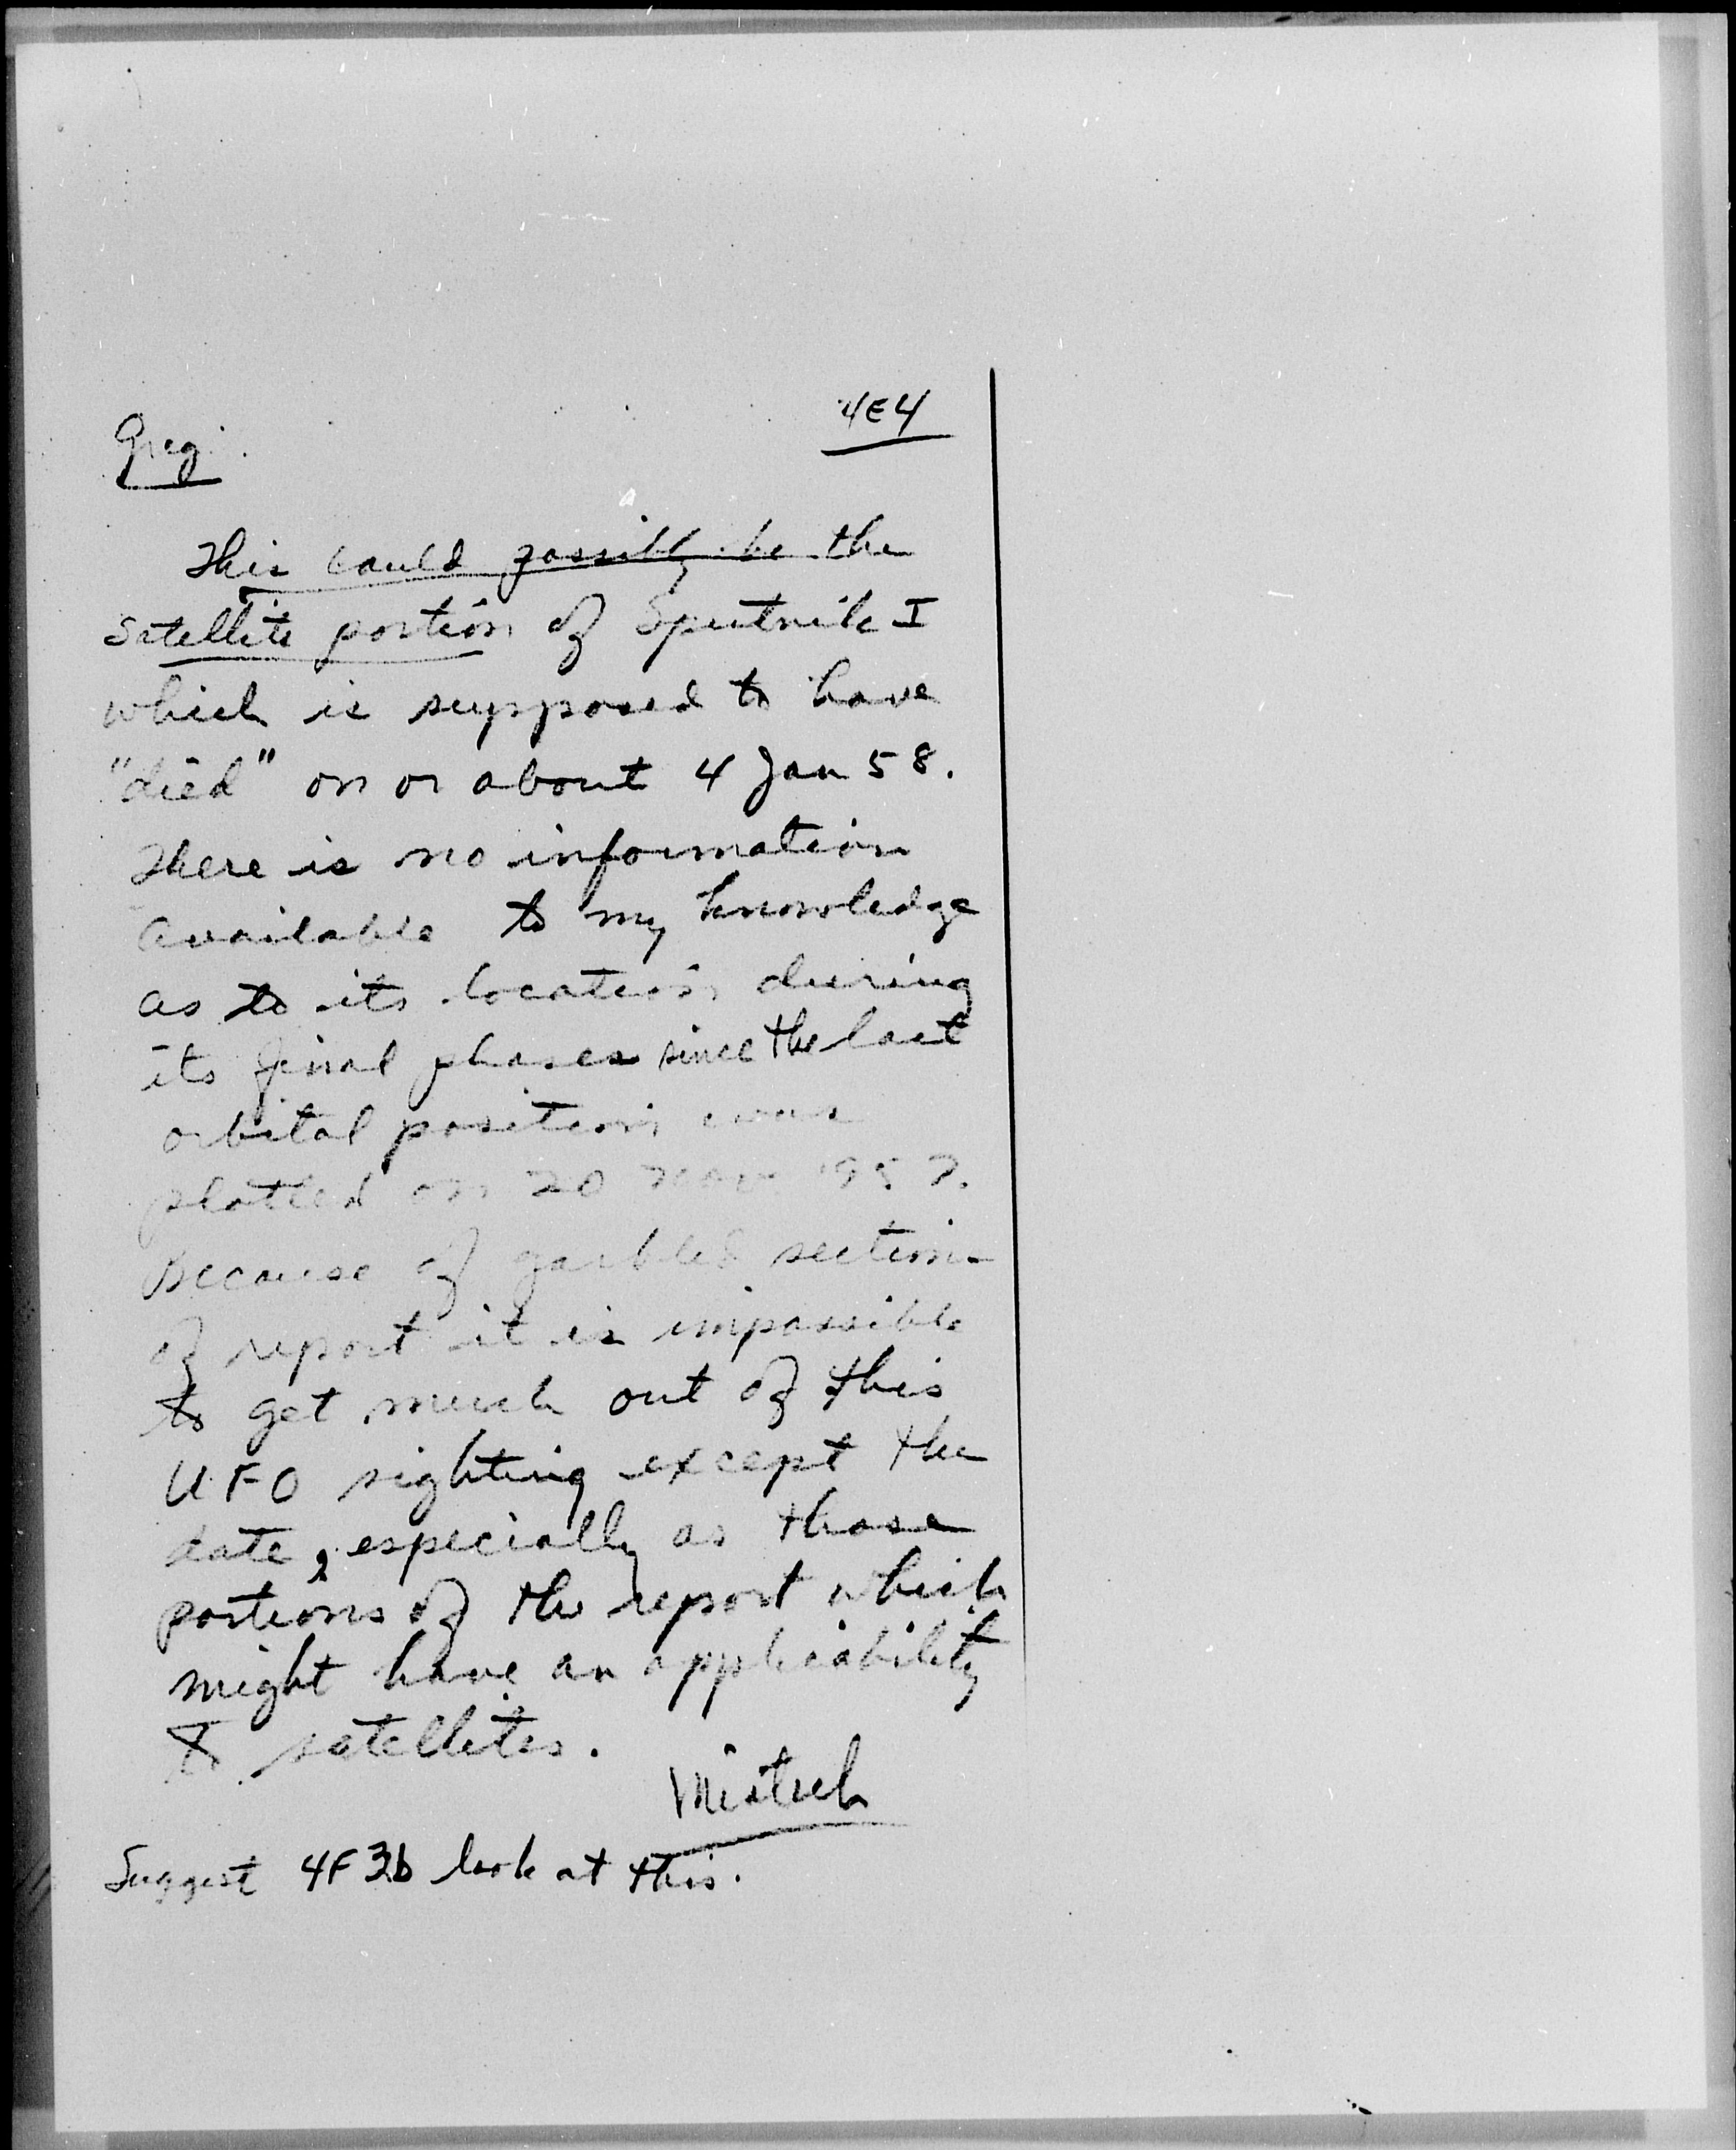 4E4
Greg
This could possibly be the
satellite portion of Sputnik I
which is supposed to have
"died" on or about 4 Jan 58.
There is no information
available to my knowledge
as to its location during
its final phases since the last
orbital position was
plotted on 20 Nov 1957.
Because of garbled section
of report it is impossible
to get much out of this
UFO sighting except the
date, especially as those
portions of the report which
might have an applicability
to satellites.
Suggest 4F3b look at this.